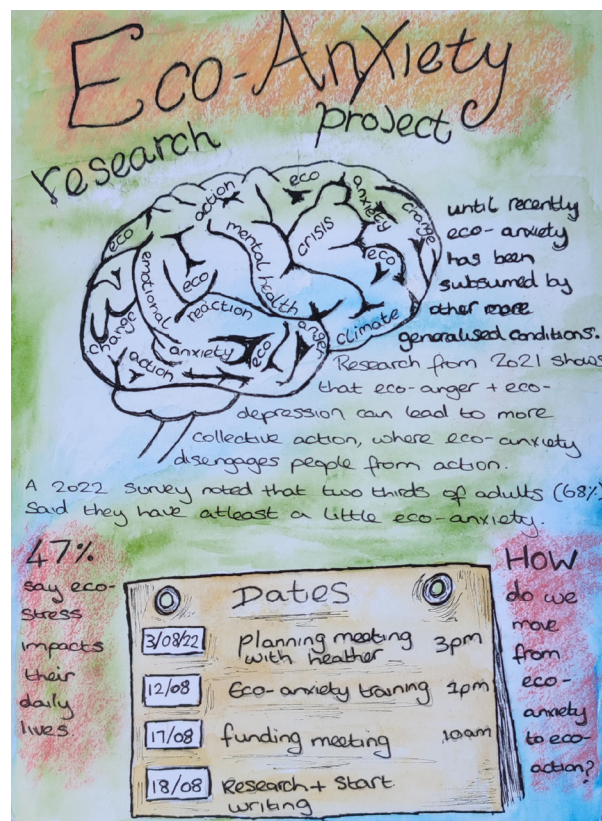 Eco-Anxiety
research project
eco
action
eco
anxiety
change
eco
emotional
eco
mental health
crisis
reaction
change
action
anxiety
eco
anger
climate
until recently
eco-anxiety
has been
subsumed by
other more
generalised conditions.
Research from 2021 shows
that eco-anger + eco-
depression can lead to more
collective action, where eco-anxiety
disengages people from action.
A 2022 survey noted that two thirds of adults (68%)
said they have atleast a little eco-anxiety.
47%
say eco-
stress
impacts
their
daily
lives.
Dates
3/08/22 planning meeting 3pm
with heather
12/08 Eco-anxiety training 1pm
17/08 funding meeting 10am
18/08 Research + start
writing
HOW
do we
move
from
eco-
anxiety
to eco-
action?